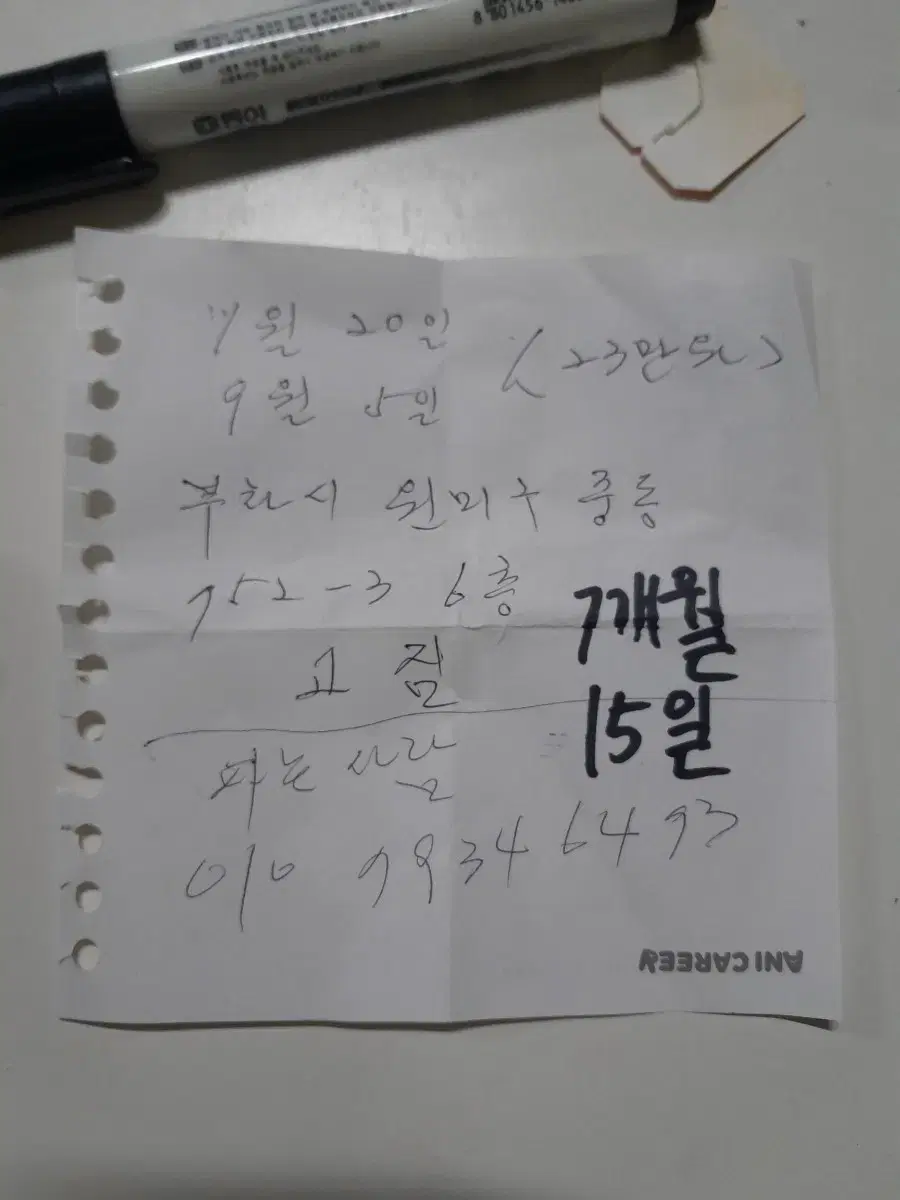 8 801456
7월 20일
9월 5일 (23만원)
부천시 원미구 중동
752-3 6층
고짐
7개월
15일
파는 사람
010 9934 6493
ANI CAREER